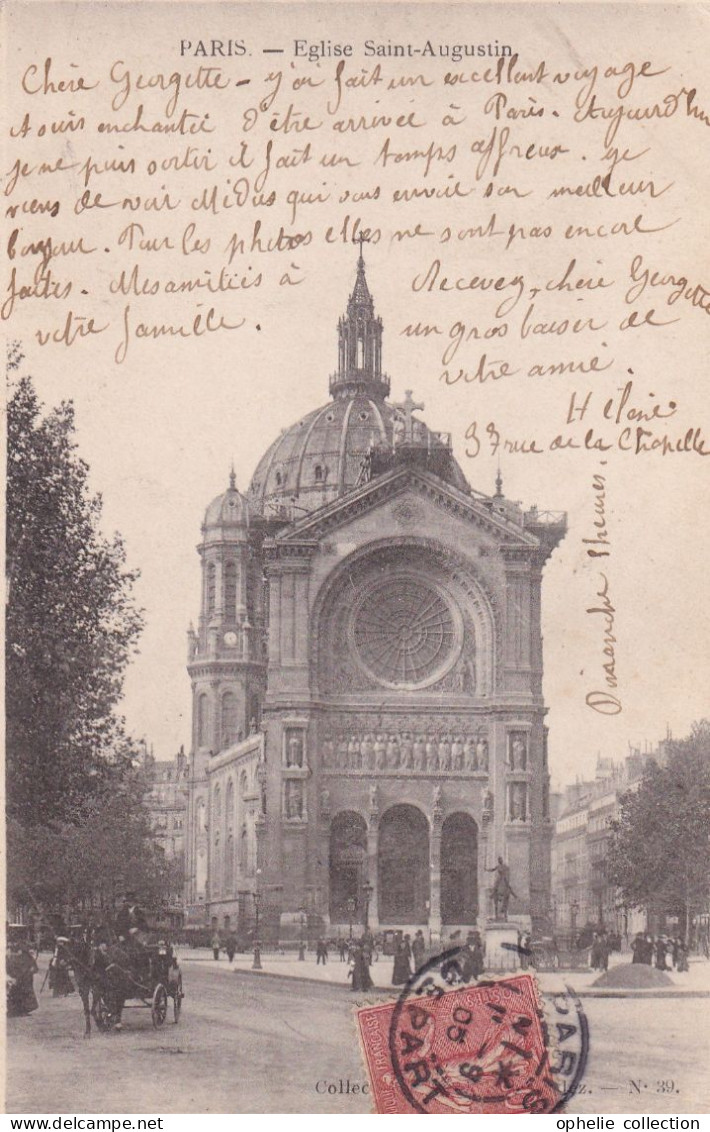 PARIS. — Eglise Saint-Augustin.
Chère Georgette – j'ai fait un excellent voyage
suis enchantée d'être arrivée à Paris. Aujourd'hui
je ne puis sortir il fait un temps affreux. je
viens de voir Midas qui vous envoie son meilleur
bonjour. Pour les photos elles ne sont pas encore
faites. Mes amitiés à
votre famille.
Recevez, chère Georgette
un gros baiser de
votre amie.
Hélène
37 rue de la Chapelle
Dimanche
PARIS
DÉPART
05
Collec
N° 39.
ophelie collection